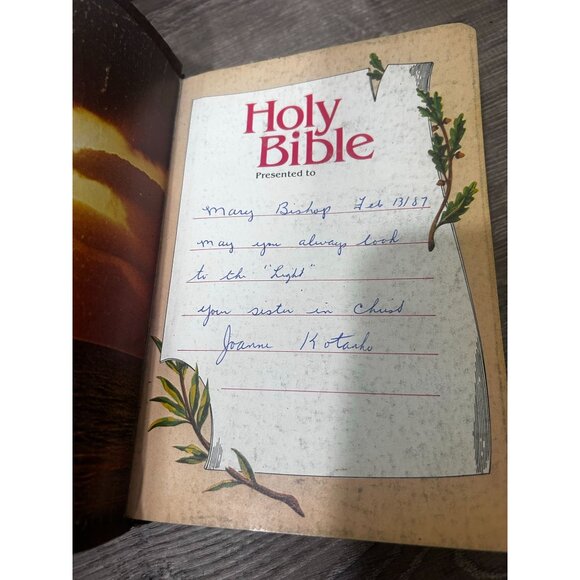 Holy
Bible
Presented to
Mary Bishop Feb 13/87
May you always look
to the "Light"
your sister in Christ
Joanne Kotanko